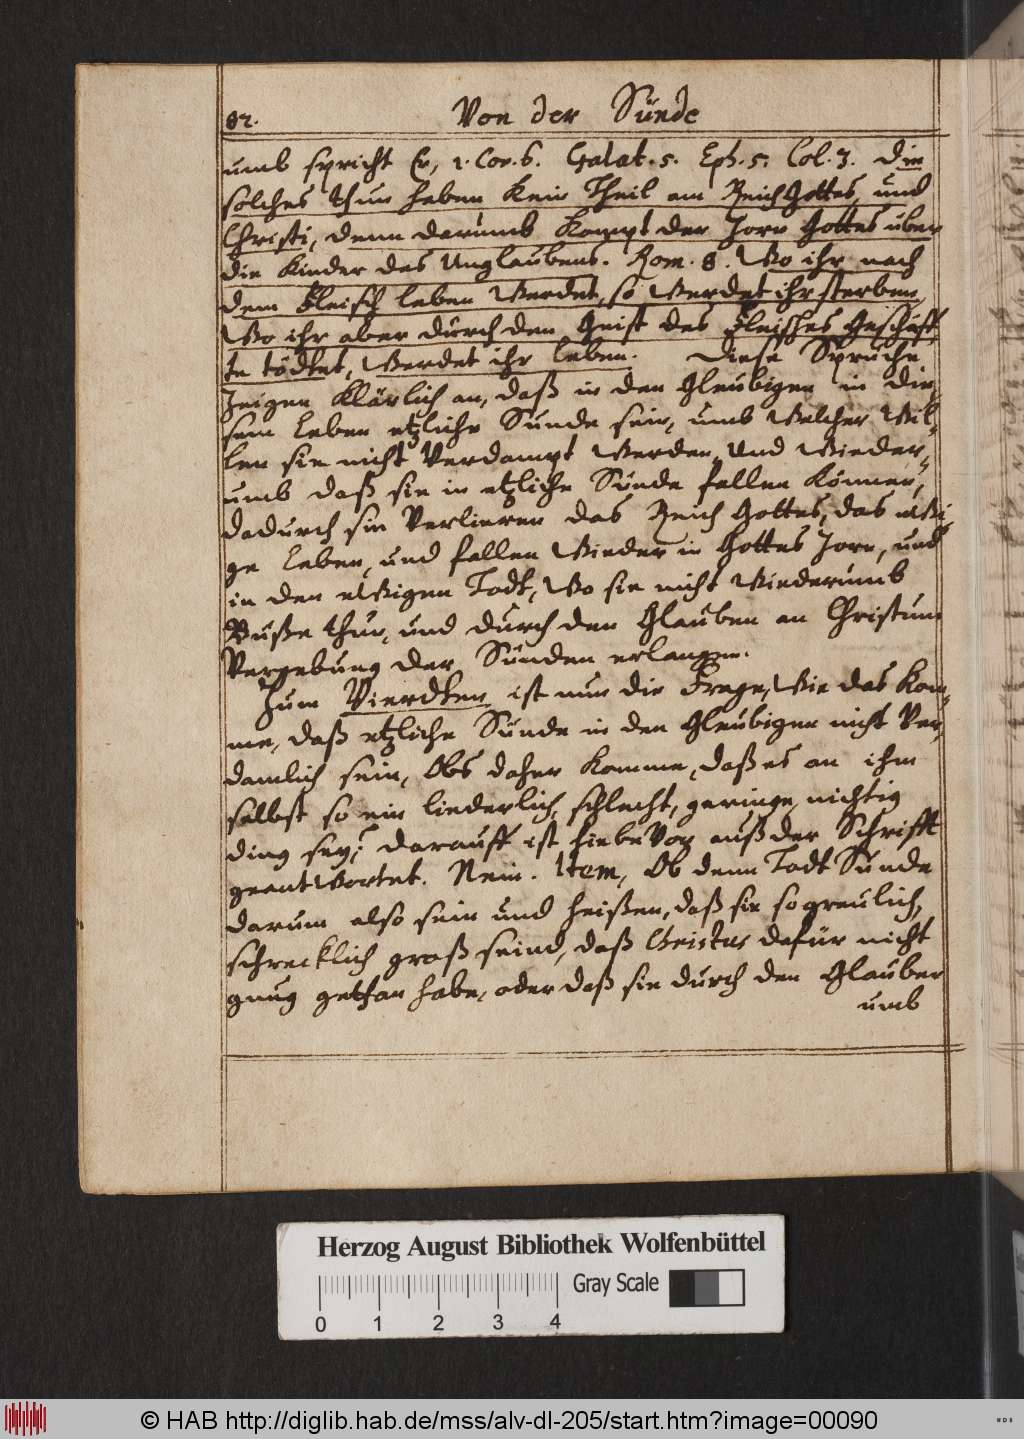 82.
Von der Sünde
umb spricht Er, 1. Cor. 6. Galat. 5. Eph. 5. Col. 3. die
solches thun haben kein Theil am Reich Gottes, und
Christi, denn darumb kompt der Zorn Gottes über
die Kinder des Unglaubens. Rom. 8. Wo ihr nach
dem Fleisch leben werdet, so werdet ihr sterben,
Wo ihr aber durch den Geist des Fleisches Geschäff-
te tödtet, werdet ihr leben. Diese Sprüche
zeigen klärlich an, daß in den Gleubigen in die-
sem Leben etzliche Sünde sein, umb welcher wil-
len sie nicht verdampt werden, Und wieder-
umb daß sie in etzliche Sünde fallen können,
dadurch sie verlieren das Reich Gottes, das ewi-
ge Leben, und fallen wieder in Gottes Zorn, und
in den ewigen Todt, wo sie nicht wiederumb
Buße thun, und durch den Glauben an Christum
Vergebung der Sünden erlangen.
Zum Vierdten ist nun die Frage, Wie das kom-
me, daß etzliche Sünde in den Gleubigen nicht ver-
damlich sein, Obs daher komme, daß es an ihm
selbst so ein liederlich, schlecht, geringe, nichtig
ding sey? darauff ist hiebevor auß der Schrifft
geantwortet. Nein. Item, Ob denn Todt Sünde
darum also sein und heißen, daß sie so greulich,
schrecklich groß seind, daß Christus dafür nicht
gnug gethan habe, oder daß sie durch den Glauben
umb
Herzog August Bibliothek Wolfenbüttel
Gray Scale
0 1 2 3 4
© HAB http://diglib.hab.de/mss/alv-dl-205/start.htm?image=00090